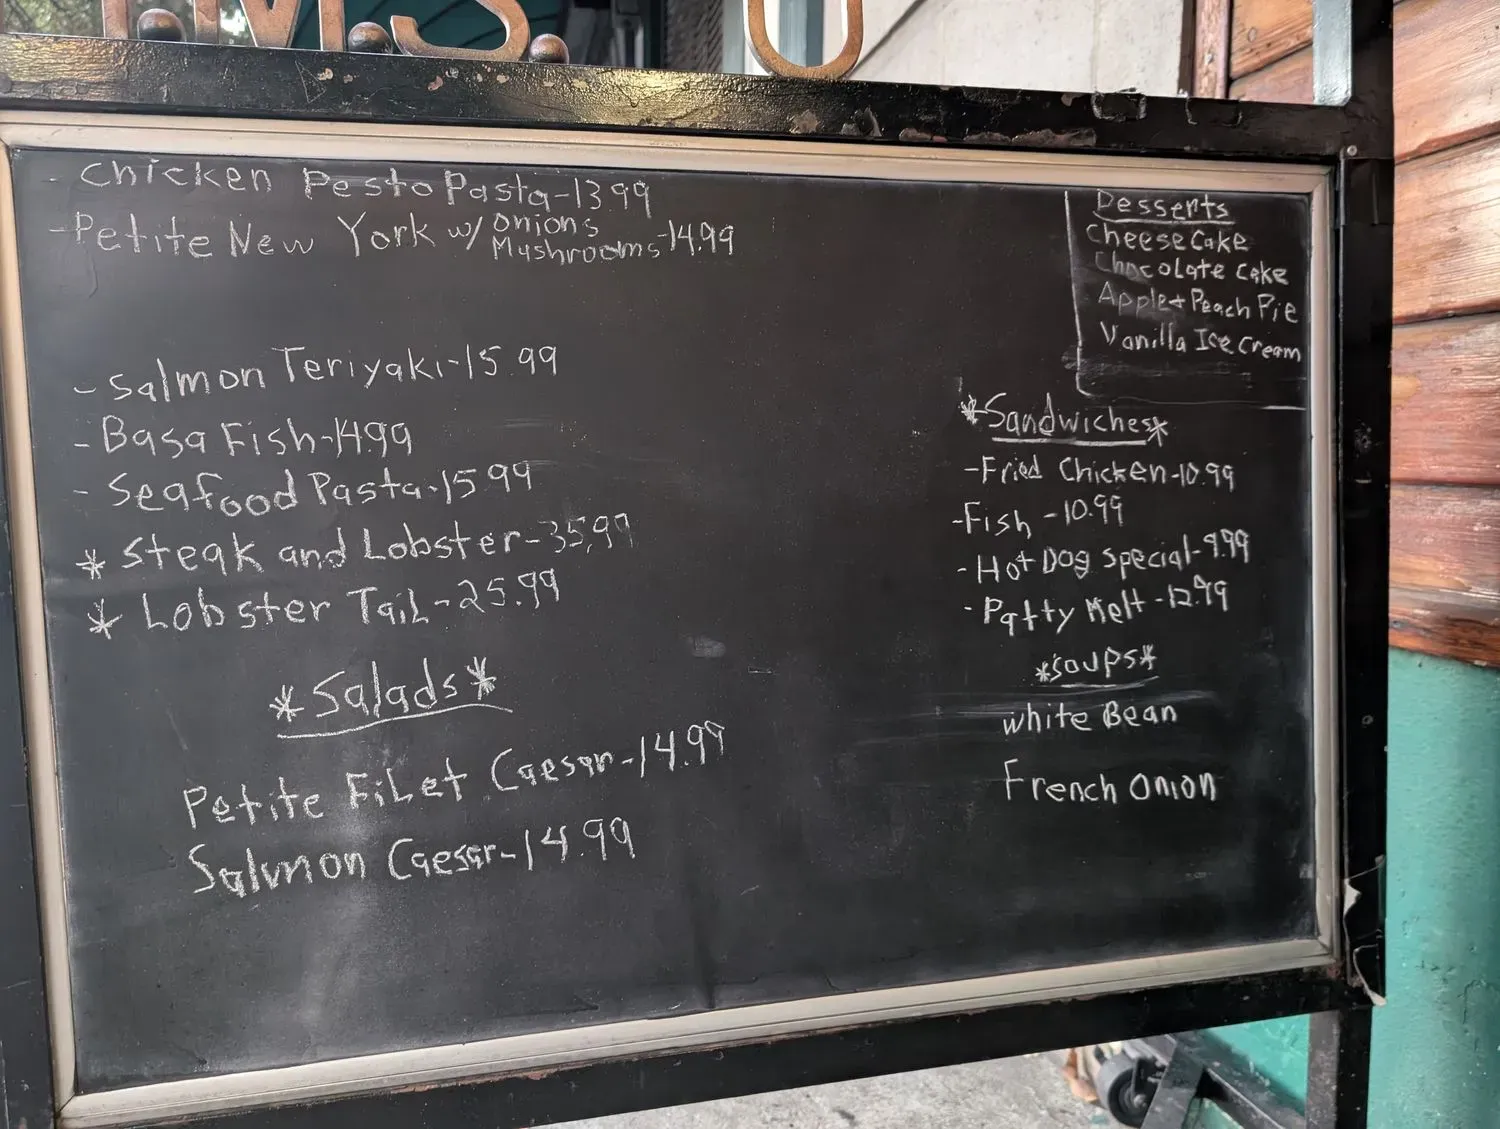 - Chicken Pesto Pasta-13.99
- Petite New York w/ onions
Mushrooms-14.99
- Salmon Teriyaki-15.99
- Basa Fish-14.99
- Seafood Pasta-15.99
* Steak and Lobster-35.99
* Lobster Tail-25.99
*Salads*
Petite Filet Caesar-14.99
Salmon Caesar-14.99
Desserts
Cheese Cake
Chocolate Cake
Apple+Peach Pie
Vanilla Ice Cream
*Sandwiches*
-Fried Chicken-10.99
-Fish -10.99
-Hot Dog Special-9.99
-Patty Melt-12.99
*Soups*
White Bean
French Onion